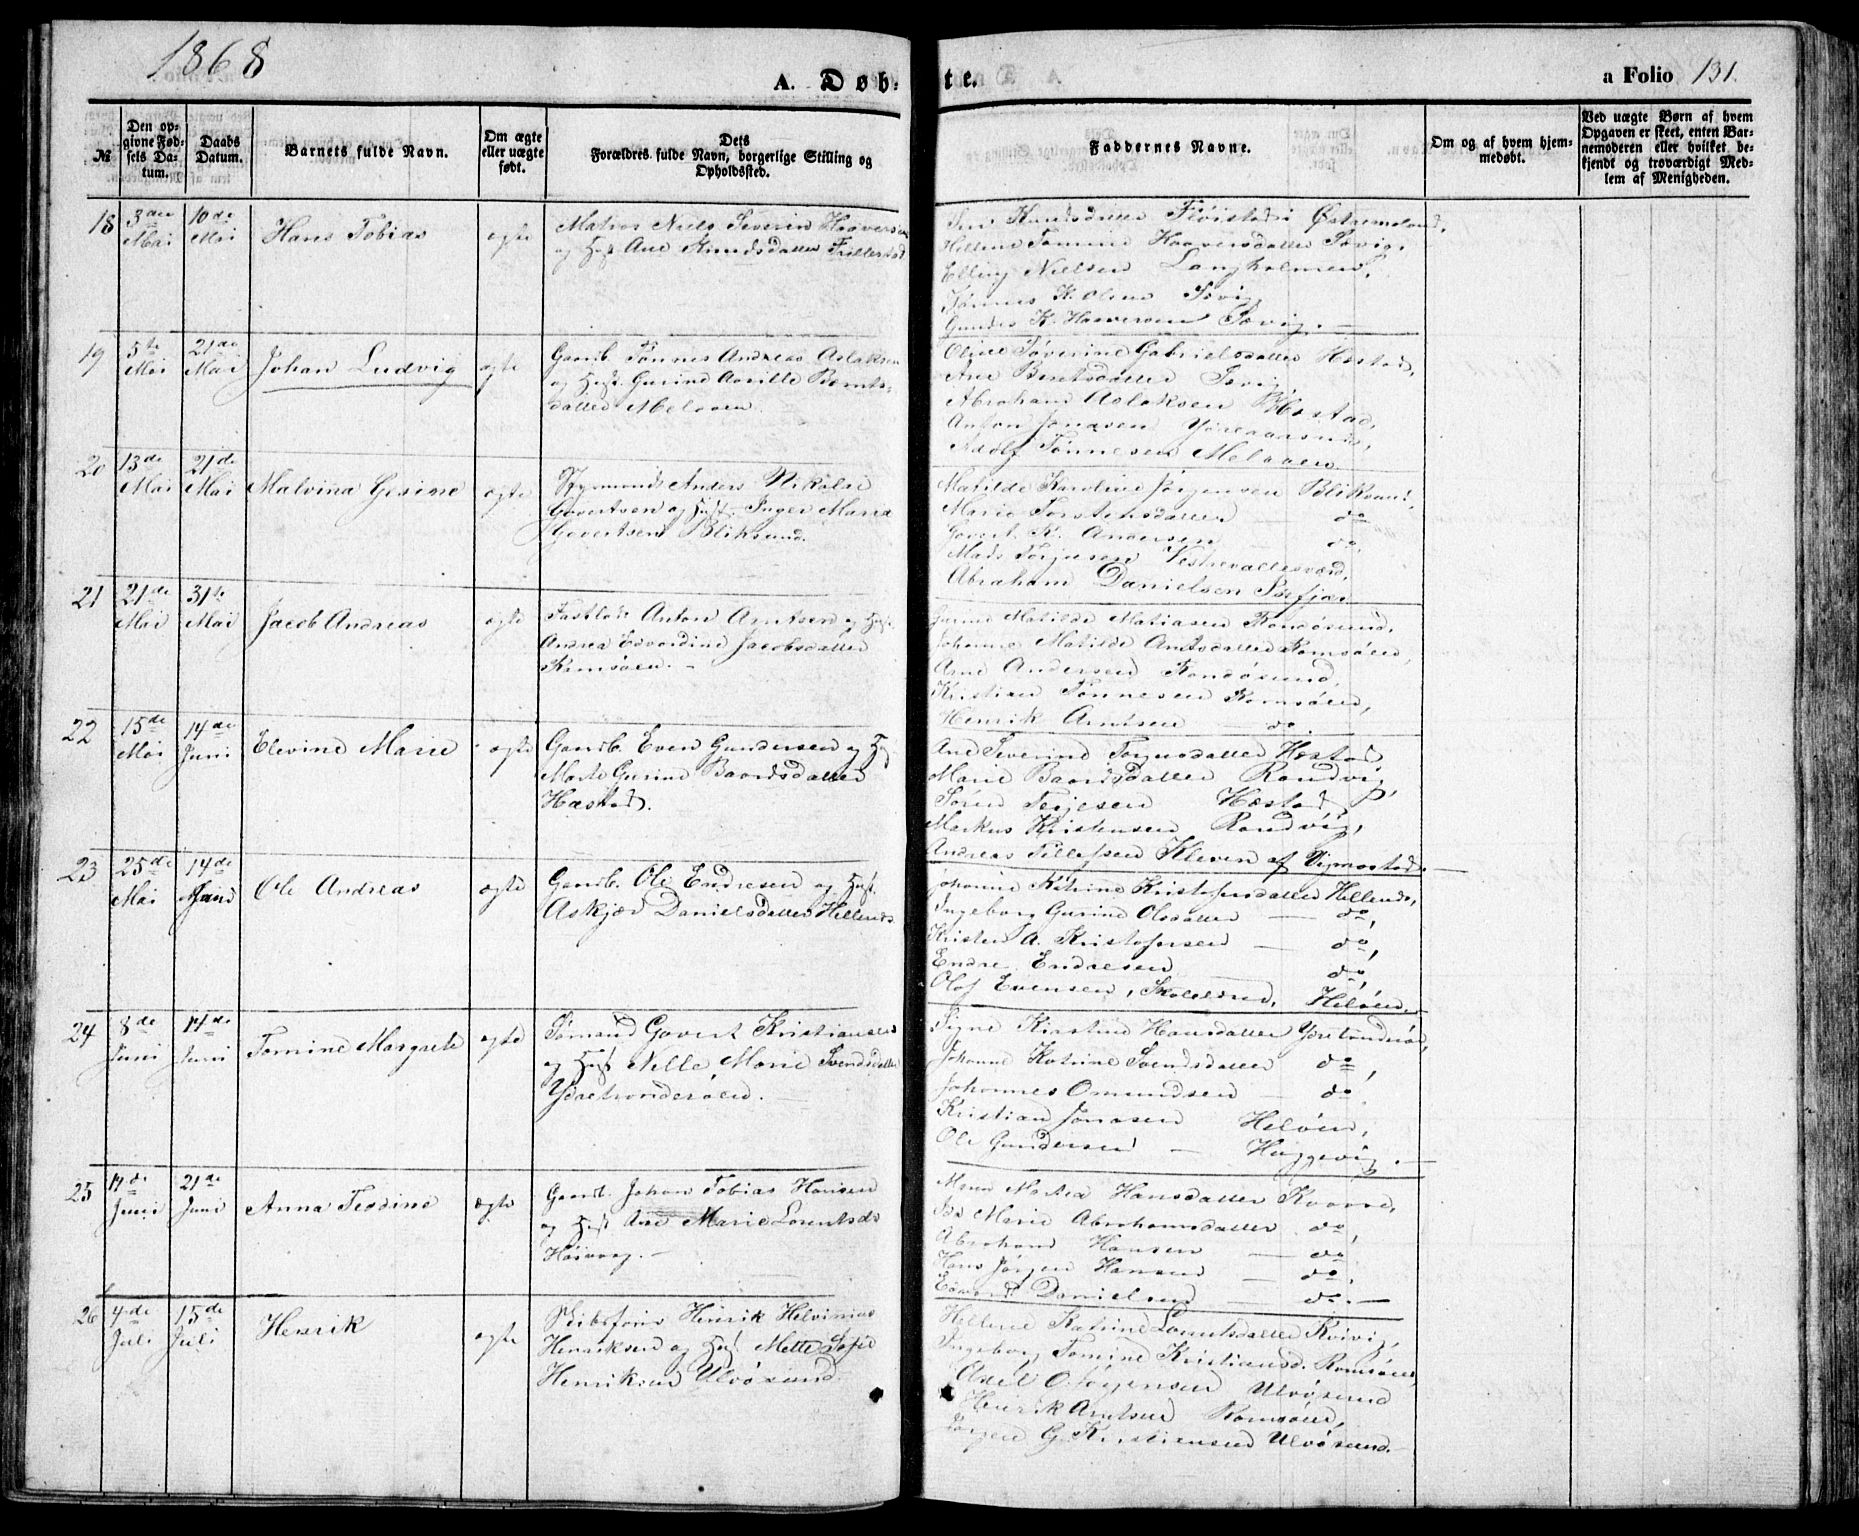 1868
A. Døb-
te.
a Folio 131.
№
Den op-
givne Fød-
sels Da-
tum.
Daabs
Datum.
Barnets fulde Navn.
Om ægte
eller uægte
født.
Dets
Forældres fulde Navn, borgerlige Stilling og
Opholdssted.
Faddernes Navne.
Om og af hvem hjem-
medøbt.
Ved uægte Børn af hvem
Opgaven er skeet, enten Bar-
nemoderen eller hvilket be-
kjendt og troværdigt Med-
lem af Menigheden.
18 3die Mai 10de Mai Hans Tobias ægte
Matros Niels Severin Haaversen
og Hust Ane Knudsdatter
Knudsdatter
Hellene Tomine Haaversdatter Søvig,
Elling Nielsen Langholmen,
Tønnes K. Olsen Søvig
Gunder K. Haaversen Søvig.
19 5te Mai 21de Mai Johan Ludvig ægte
Gaardb. Tønnes Andreas Aslaksen
og Hust. Gurine Bernts-
datter
Oline Severine Gabrielsdatter Hæstad,
Ane Berntsdatter Søvig,
Abraham Aslaksen Hæstad,
Anton Jonasen
Adolf Tønnesen
20 13de Mai 21de Mai Malvina Gesine ægte
Styrmand Anders Nikolai
Govertsen og Hust. Inger Maria
Govertsen Bliksund.
Matilde Karoline Jørgensen Bliksund
Marie Torstensdatter — do
Govert K. Andersen — do.
Mads Terjesen Vestrevallesværd,
Abraham Danielsen
21 21de Mai 31te Mai Jacob Andreas ægte
Anton Arntsen og Hust.
Andrea Edvardine Jacobsdatter
Romsøen. —
Matilde Matiasen Randøsund,
Johanne Matilde Arntsdatter Romsøen,
Arne Andersen Randøsund,
Kristian Tønnesen Romsøen,
Henrik Arntsen — do.
22 15de Mai 14de Juni Elevine Marie ægte
Gaardb. Even Gundersen og H
Marte Gurine Baardsdatter
Hæstad.
Ane Severine Hæstad
Marie Baardsdatter Randvig,
Søren Terjesen Hæstad,
Markus Kristensen Randvig,
Andreas Tellefsen Kleven af Vigmostad.
23 25de Mai 14de Juni Ole Andreas ægte
Gaardb. Ole Endresen og Hust.
Askjær Danielsdatter Hellende
Johanne Katrine Kristofersdatter Hellende,
Ingeborg Gurine Olsdatter — do,
Kristen A. Kristofersen — do,
Endre Endresen do,
Olof Evensen, Heløen.
24 8de Juni 14de Juni Tomine Margrete ægte
Sømand Govert Kristiansen
og Hust Nelle Marie Svendsdatter
Ydretronderøen. —
Signe Kirstine Hansdatter
Johanne Katrine Svendsdatter do,
Johannes Omundsen — do.
Kristian Jonasen Heløen,
Ole Gundersen — Haggevig.
25 14de Juni 21de Juni Anna Teodine ægte
Gaardb. Johan Tobias Hansen
og Hust Ane Marie Lorentsd.
Høivaag. —
Maren Martea Hansdatter
Marie Abrahamsdatter do,
Abraham Hansen — do
Hans Jørgen Hansen — do.
Edvard Danielsen — do. —
26 4de Juli 15de Juli Henrik ægte
Skibsfører Henrik Helvinius
Henriksen og Hust Mette Sofie
Henriksen Ulvøsund.
Hellene Katrine Lorentsdatter Kvivig,
Ingeborg Tomine Kristiansd. Romsøen,
Axel O. Jørgensen Ulvøsund
Henrik Arntsen Romsøen,
Jørgen G. Kristiansen Ulvøsund.